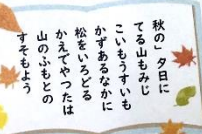 秋の」夕日に
てる山もみじ
こいもうすいも
かずあるなかに
松をいろどる
かえでやつたは
山のふもとの
すそもよう